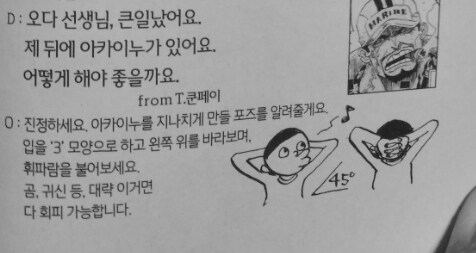 D: 오다 선생님, 큰일났어요.
제 뒤에 아카이누가 있어요.
어떻게 해야 좋을까요.
from T.쿤페이
O: 진정하세요. 아카이누를 지나치게 만들 포즈를 알려줄게요.
입을 '3' 모양으로 하고 왼쪽 위를 바라보며,
휘파람을 불어보세요.
곰, 귀신 등, 대략 이거면
다 회피 가능합니다.
45°
MARINE